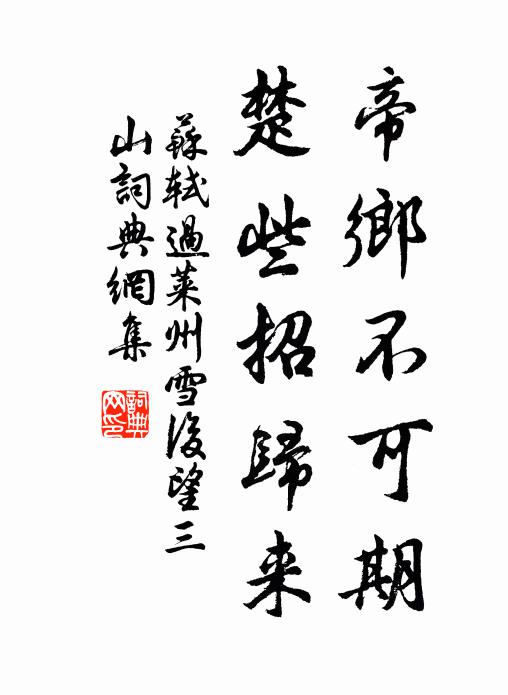 帝鄉不可期
楚些招歸来
蘇軾過萊州雪後望三
山詞典網集
詞典
网印